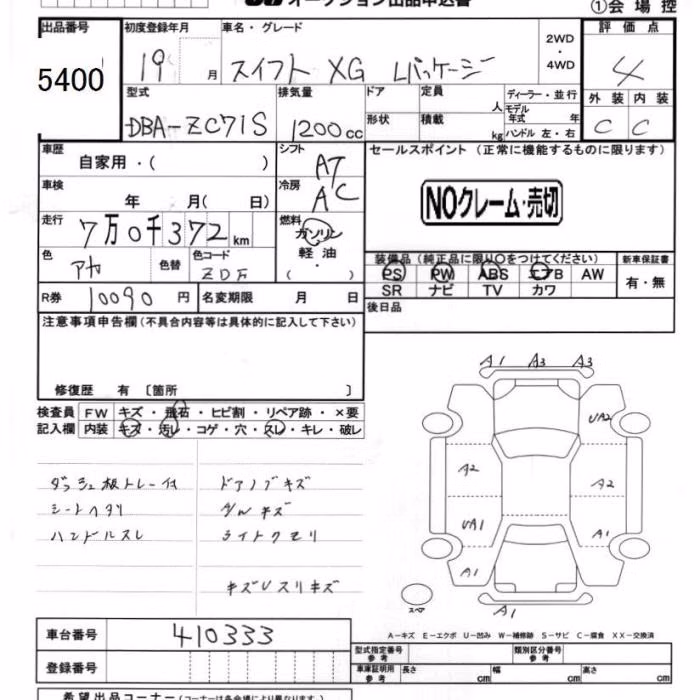 オークション出品申込書
①会場控
出品番号 初度登録年月 車名・グレード 評価点
5400 19 月 スイフト XG Lパッケージ 2WD・4WD 4
型式 排気量 ドア 定員 人 ディーラー・並行 外装 内装
DBA-ZC71S 1200cc 形状 積載 kg モデル年式 年 ハンドル 左・右 C C
車歴 自家用・( ) シフト AT セールスポイント (正常に機能するものに限ります)
車検 年 月( 日) 冷房 AC NOクレーム・売切
走行 7万0千372km 燃料 ガソリン
軽油・( )
色 アカ 色替 色コード ZDF
装備品(純正品に限り○をつけてください) 新車保証書
PS PW ABS エアB AW 有・無
SR ナビ TV カワ
R券 10090円 名変期限 月 日 後日品
注意事項申告欄(不具合内容等は具体的に記入して下さい)
修復歴 有 〔箇所 〕
検査員記入欄 FW キズ・飛石・ヒビ割・リペア跡・×要
内装 キズ・汚レ・コゲ・穴・スレ・キレ・破レ
A1 A3 A3
UA2
A2 A2
UA1 A1
A1
スペア A1
ダッシュ板トレー付 ドアノブキズ
シートヘタリ
ハンドルスレ ライトクモリ
キズUスリキズ
A-キズ E-エクボ U-凹み W-補修跡 S-サビ C-腐食 XX-交換済
車台番号 410333
型式指定番号 参考 類別区分番号 参考
登録番号
車庫証明用 参考 長さ cm 幅 cm 高さ cm
希望出品コーナー